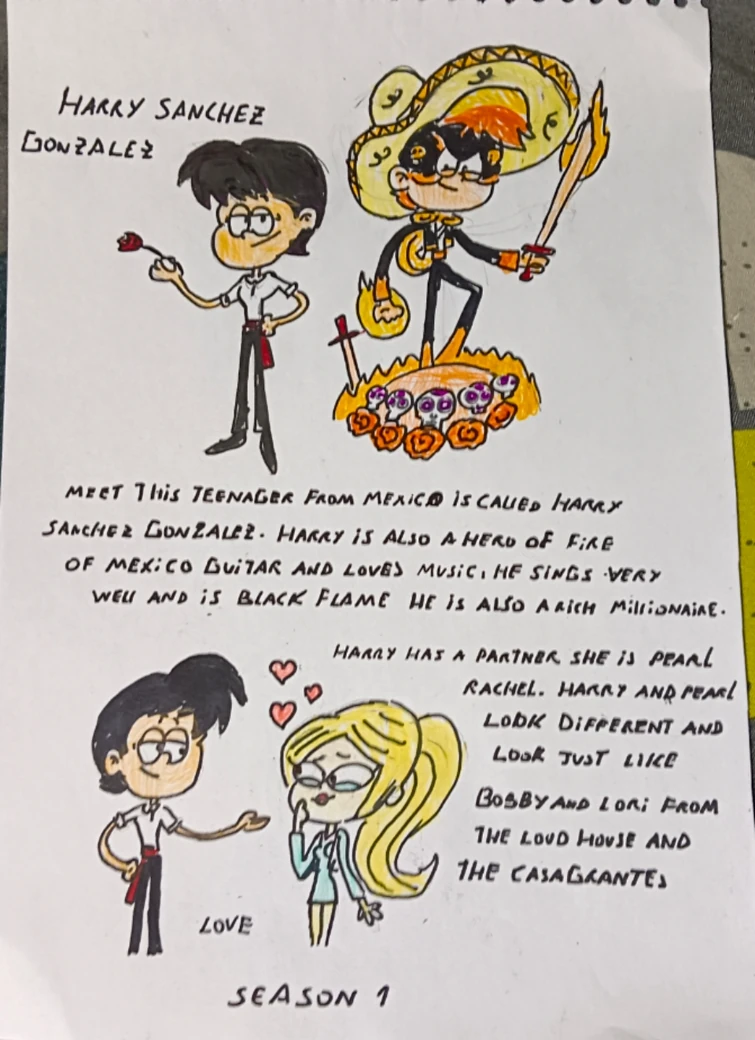 HARRY SANCHEZ
GONZALEZ
MEET THIS TEENAGER FROM MEXICO IS CALLED HARRY
SANCHEZ GONZALEZ. HARRY IS ALSO A HERO OF FIRE
OF MEXICO GUITAR AND LOVES MUSIC, HE SINGS VERY
WELL AND IS BLACK FLAME HE IS ALSO A RICH MILLIONAIRE.
HARRY HAS A PARTNER SHE IS PEARL
RACHEL. HARRY AND PEARL
LOOK DIFFERENT AND
LOOK JUST LIKE
BOBBY AND LORI FROM
THE LOUD HOUSE AND
THE CASAGRANTES
LOVE
SEASON 1